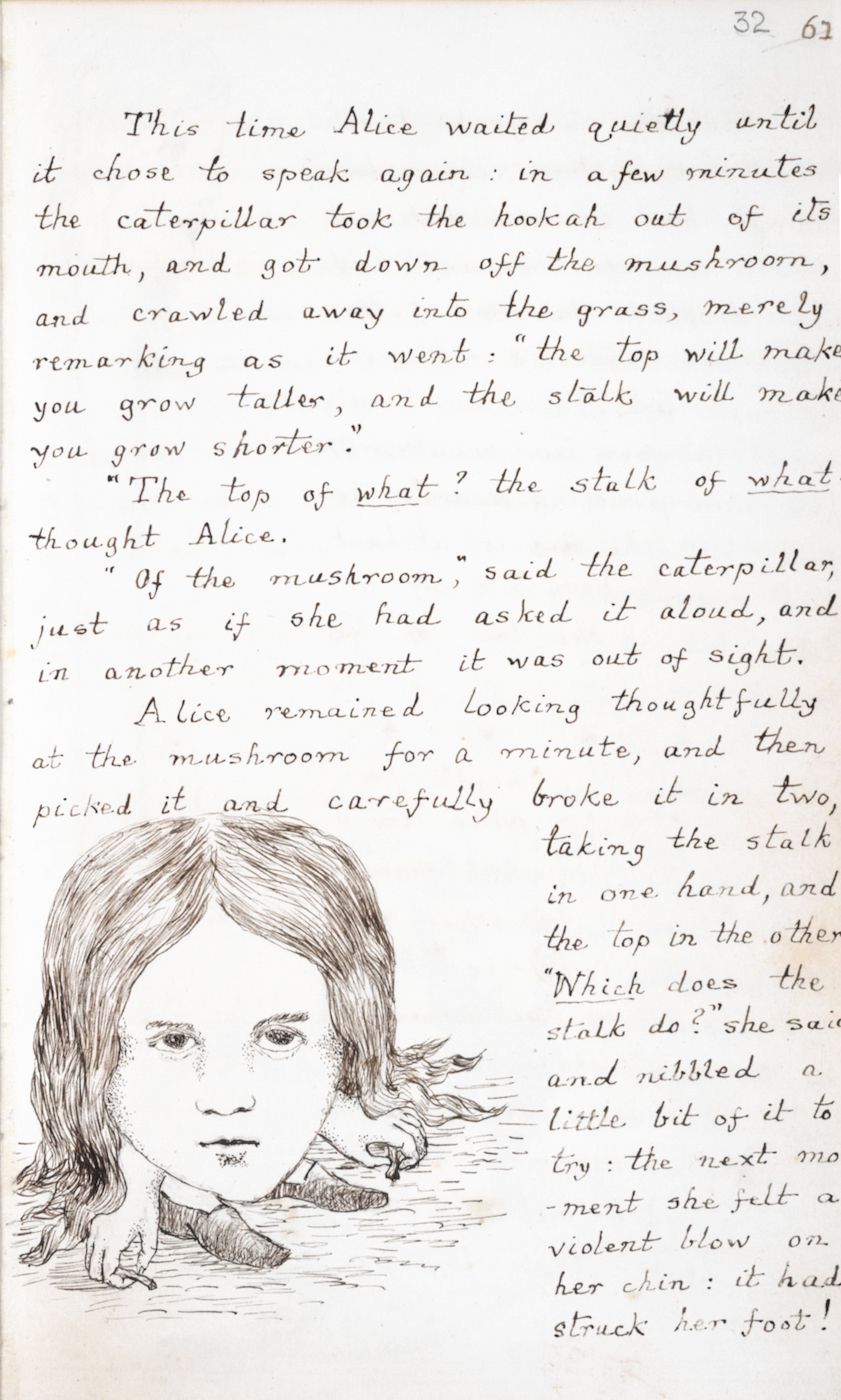 32 61
This time Alice waited quietly until
it chose to speak again : in a few minutes
the caterpillar took the hookah out of its
mouth, and got down off the mushroom,
and crawled away into the grass, merely
remarking as it went : "the top will make
you grow taller, and the stalk will make
you grow shorter."
"The top of what? the stalk of what
thought Alice.
"Of the mushroom," said the caterpillar,
just as if she had asked it aloud, and
in another moment it was out of sight.
Alice remained looking thoughtfully
at the mushroom for a minute, and then
picked it and carefully broke it in two,
taking the stalk
in one hand, and
the top in the other
"Which does the
stalk do?" she said
and nibbled a
little bit of it to
try : the next mo
-ment she felt a
violent blow on
her chin : it had
struck her foot!